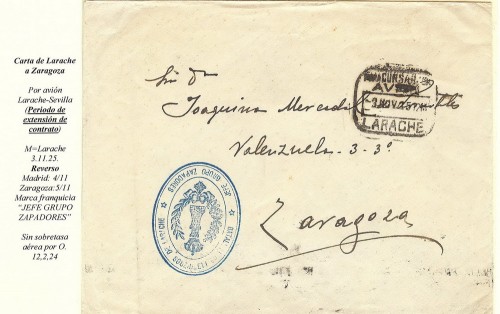 Carta de Larache
a Zaragoza
Por avión
Larache-Sevilla
(Periodo de
extensión de
contrato)
M=Larache
3.11.25.
Reverso
Madrid: 4/11
Zaragoza:5/11
Marca franquicia
"JEFE GRUPO
ZAPADORES"
Sin sobretasa
aérea por O.
12,2,24
Joaquina
Valenzuela - 3 - 3º
Zaragoza
LARACHE
GRUPO ZAPADORES